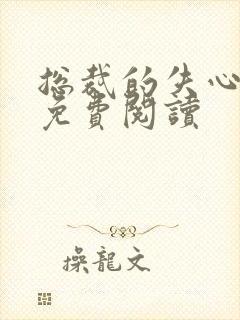 总裁的失心
免費閱讀
操龍文